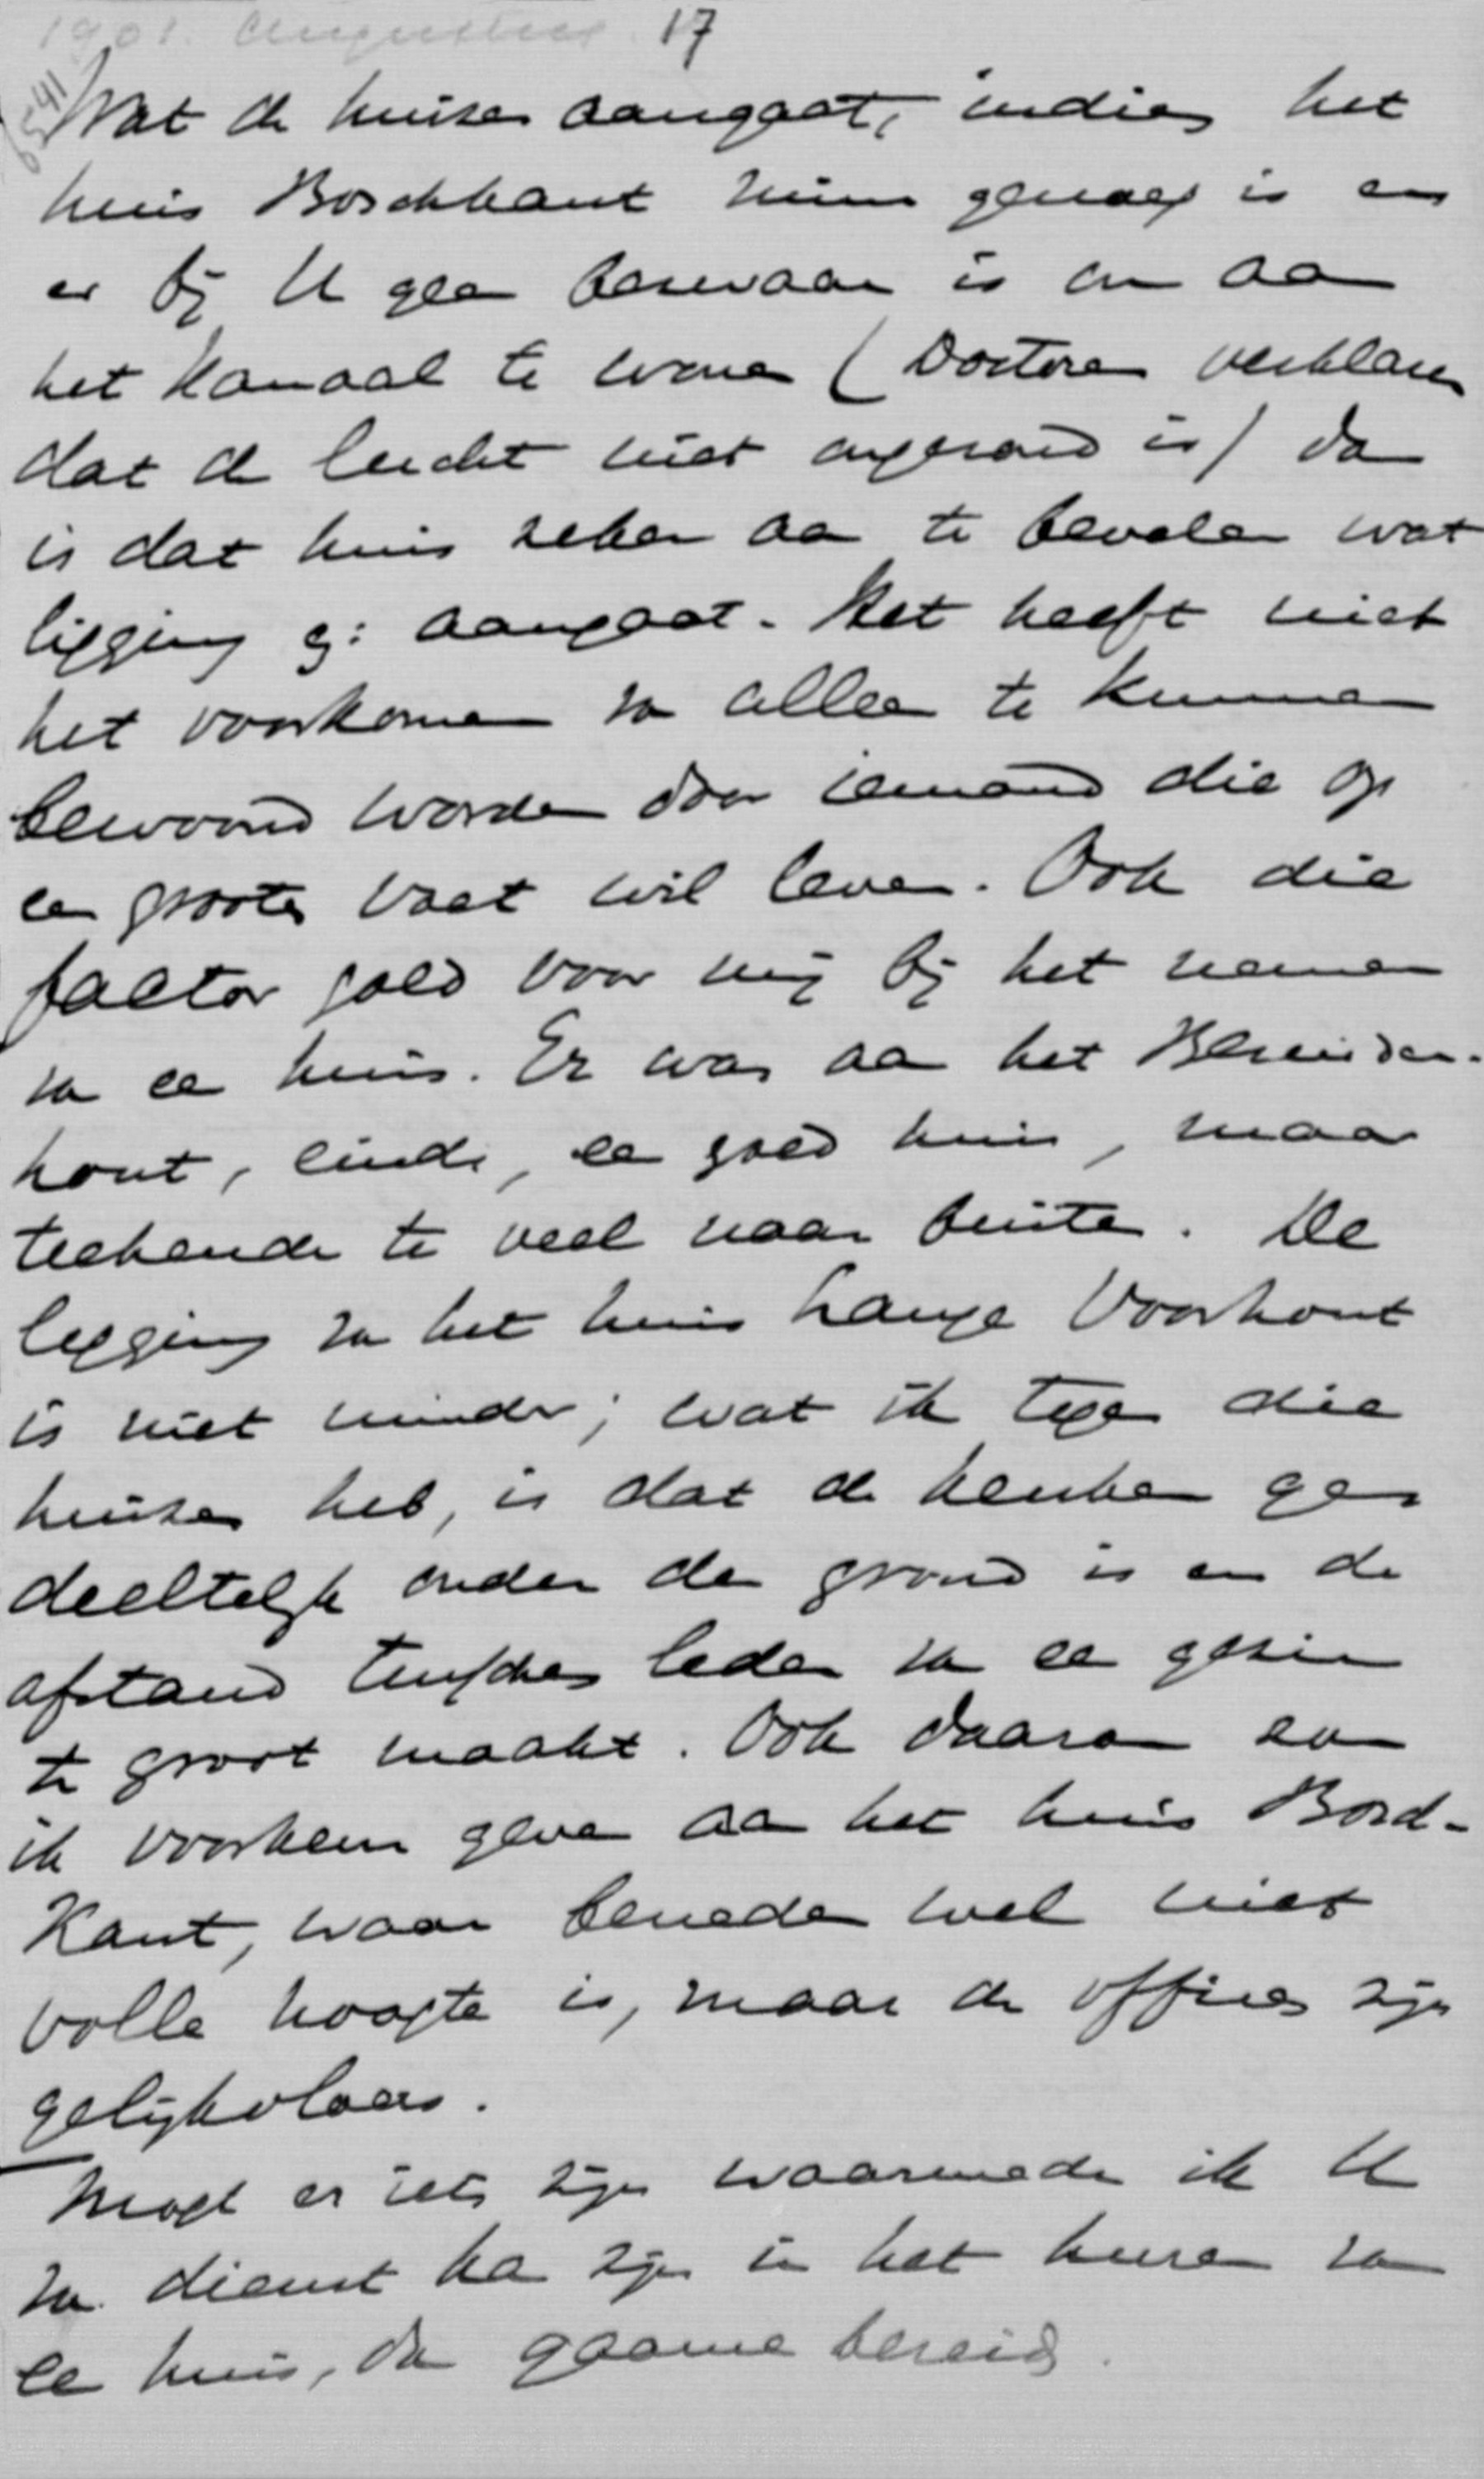 1901. Augustus. 17
6541
Wat de huizen aangaat, indien het
huis Boschkant ruim genoeg is en
er bij U geen bezwaar is om aan
het Kanaal te wonen (Doctoren verklaren
dat de lucht niet ongezond is) dan
is dat huis zeker aan te bevelen wat
ligging e;i aangaat. Het heeft niet
het voorkomen van alleen te kunnen
bewoond worden door iemand die op
een grooten voet wil leven. Ook die
factor gold voor mij bij het nemen
van een huis. Er was aan het Bezuiden-
hout, einde, een goed huis, maar
teekende te veel naar buiten. De
ligging van het huis Lange Voorhout
is niet minder; wat ik tegen die
huizen heb, is dat de keuken ge-
deeltelijk onder den grond is en de
afstand tusschen leden van een gezin
te groot maakt. Ook daarom zou
ik voorkeur geven aan het huis Bosch-
Kant, waar beneden wel niet
volle hoogte is, maar de offices zijn
gelijkvloers.
Mogt er iets zijn waarmede ik U
van dienst kan zijn in het huren van
een huis, dan gaarne bereid.